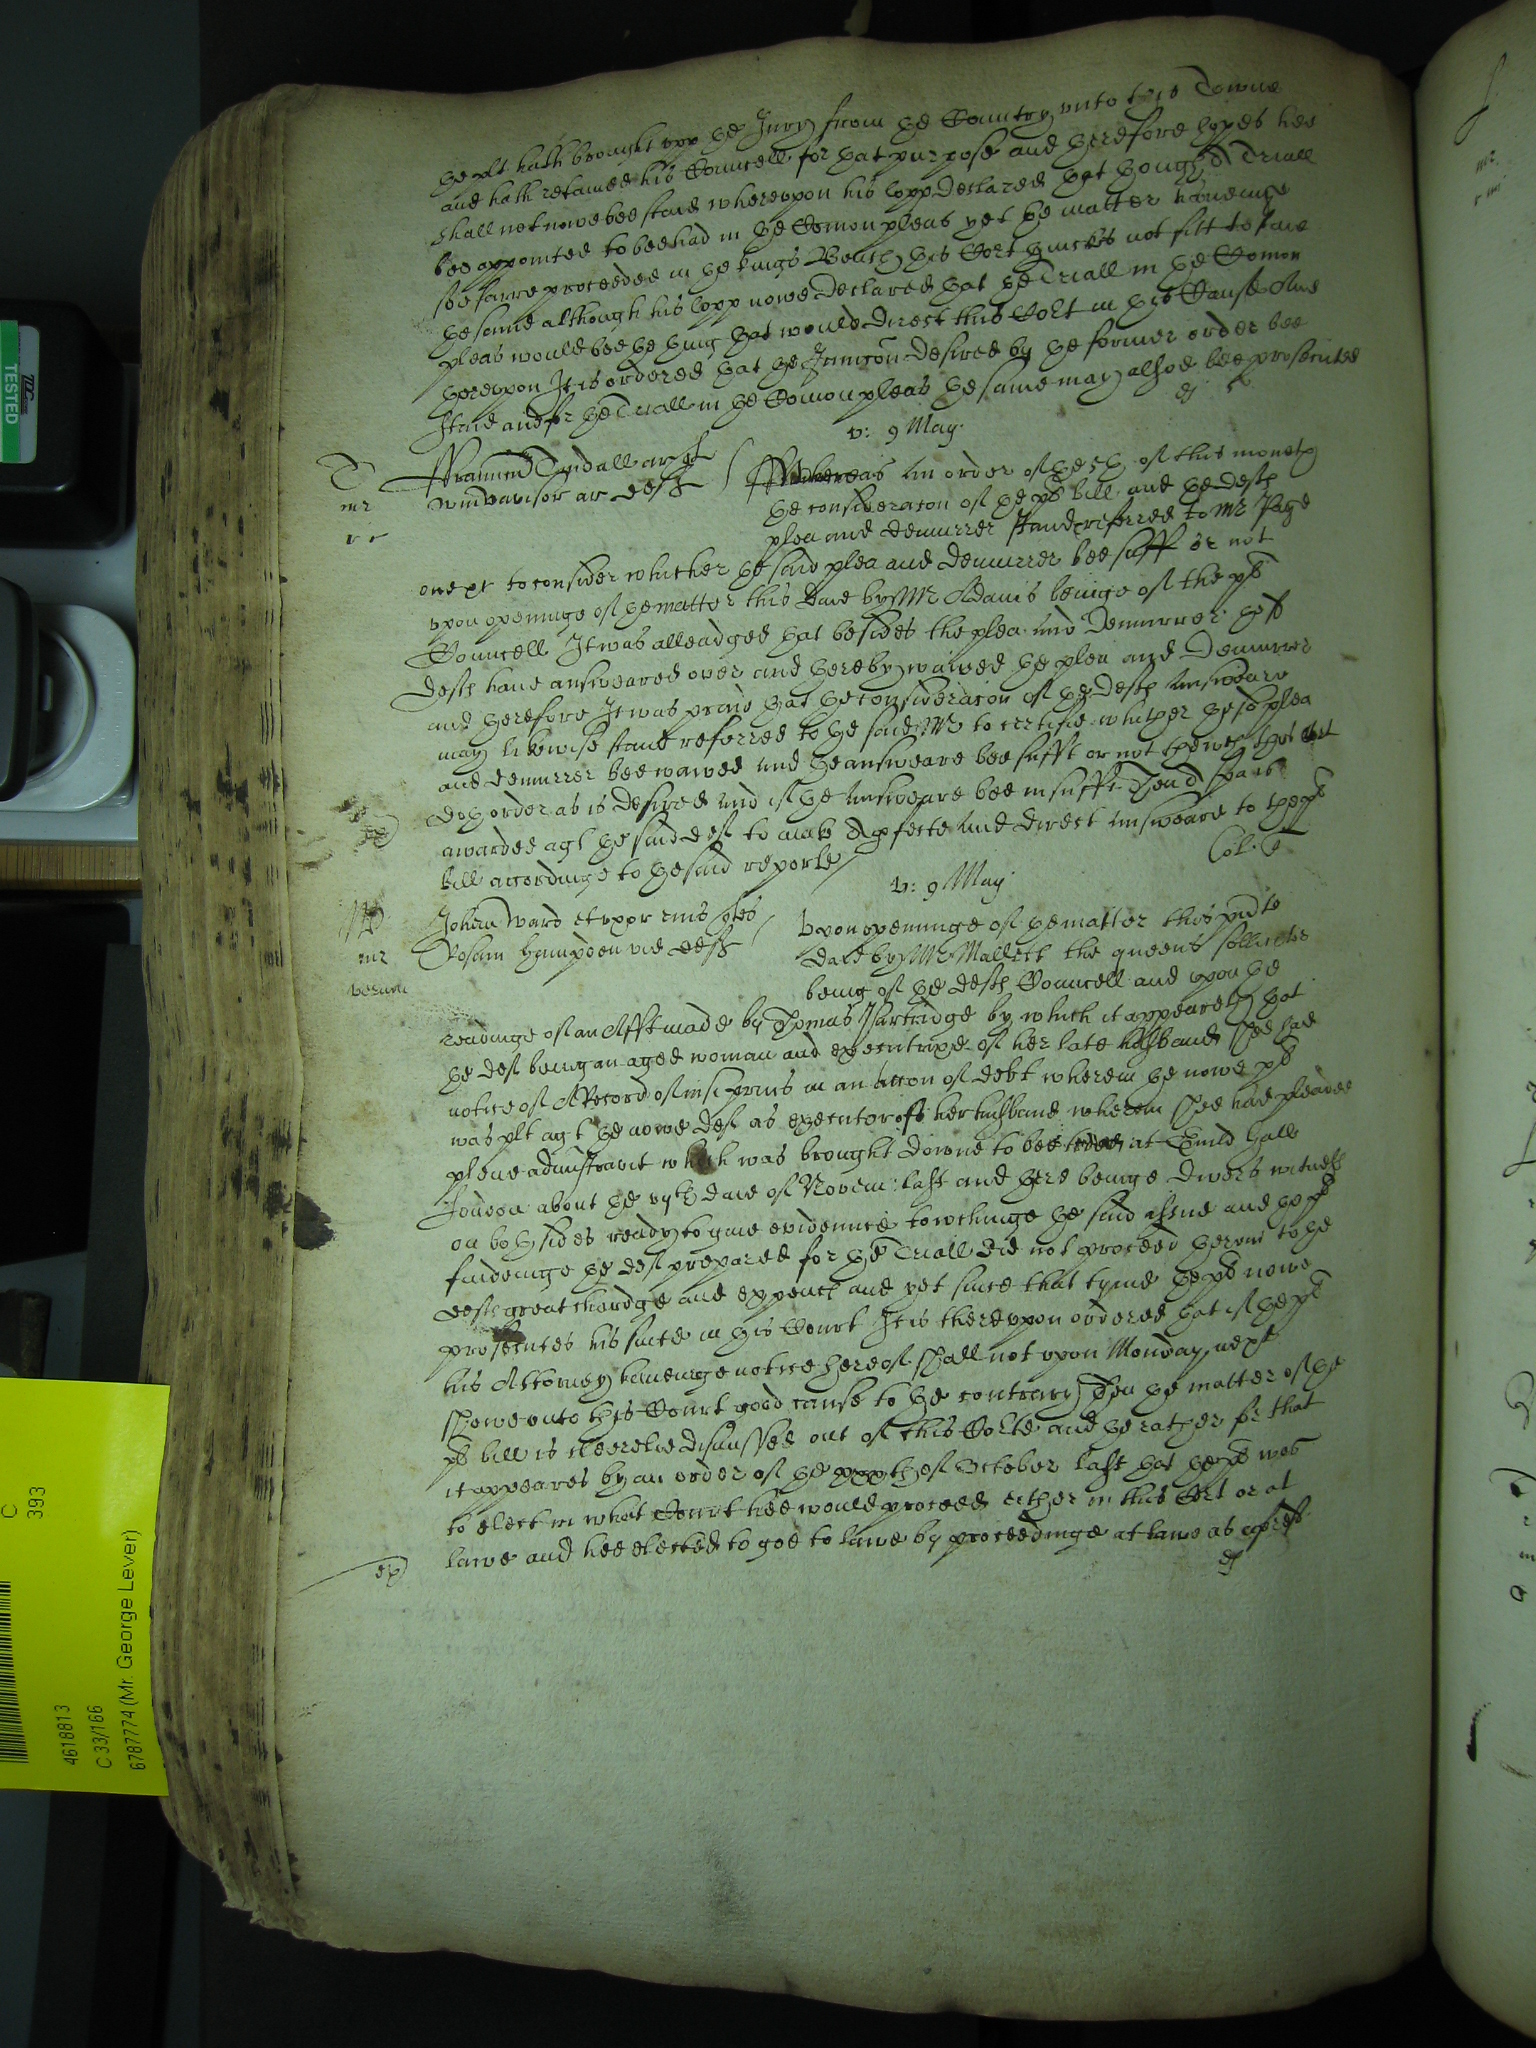 the plt hath brought upp the Jury from the Country unto this Towne
and hath retained his Councell for that purpose and therefore hopes hee
shall not nowe bee staid whereupon his lopp declared that though a Triall
bee appointed to bee had in the Comon pleas yet the matter haveinge
soe farre proceeded in the kings Bench this Cort thincks not fitt to staie
the same although his lopp nowe declared that the Triall in the Comon
pleas would bee the thing that would direct this Cort in this Cause And
thereupon It is ordered that the Iniuncon desired by the former order bee
staid and for the Triall in the Comon pleas the same may alsoe bee prosecuted
v: 9 May
T
mr
Tindall ar plt
Davison ar deft
Whereas in order of the 5th of this moneth
the consideracon of the pts bill and the defts
plea and demurrer stand referred to Mr Page
one &c to consider whether the said plea and demurrer bee suff or not
upon openinge of the matter this daie by Mr Adams beinge of the pts
Councell It was alleadged that besides the plea and demurrer the
deft have answeared over and thereby waived the plea and demurrer
and therefore It was praid that the consideracon of the defts answeare
may likewise stand referred to the said Mr to certifie whether the sd plea
and demurrer bee waived and the answeare bee sufft or not this Cort
doth order as is desired and if the answeare bee insufft Then
awarded agt the said deft to make a pfecte and direct answeare to the pts
bill accordinge to the said reporte
v: 9 May
W
mr
Johen Ward et uxor eius plts
Hampden vid deft
Upon openinge of the matter this pnte
daie by Mr Mallett the queens sollicitor
being of the defts Councell and upon the
readinge of an Afft made by Thomas Partridge by which it appeareth that
the deft being an aged woman and executrixe of her late husband shee had
notice of A Record of nisi prius in an accon of debt wherein the nowe pt
was plt agt the nowe deft as executor of her husband wherein shee had pleaded
plene administravit which was brought downe to bee tried at Guild hall
London about the daie of Novem: last and there beinge divers witness
on both sides ready to give evidennce towchinge the said issue and the pt
findeinge the deft prepared for the Triall did not proceed therein to the
defts great chardge and expence and yet since that tyme the pt nowe
prosecutes his suite in this Court It is thereupon ordered that if the pt
his Attorney haveinge notice hereof shall not upon Monday next
shewe unto this Court good cause to the contrary Then the matter of the
pts bill is cleerelie dismissed out of this Corte and the rather for that
it appeares by an order of the of October last that the pt was
to elect in what Court hee would proceed either in this Cort or at
lawe and hee elected to goe to lawe by proceedinge at lawe as aforesd
TESTED
C
393
4618813
C 33/166
6787774 (Mr. George Lever)